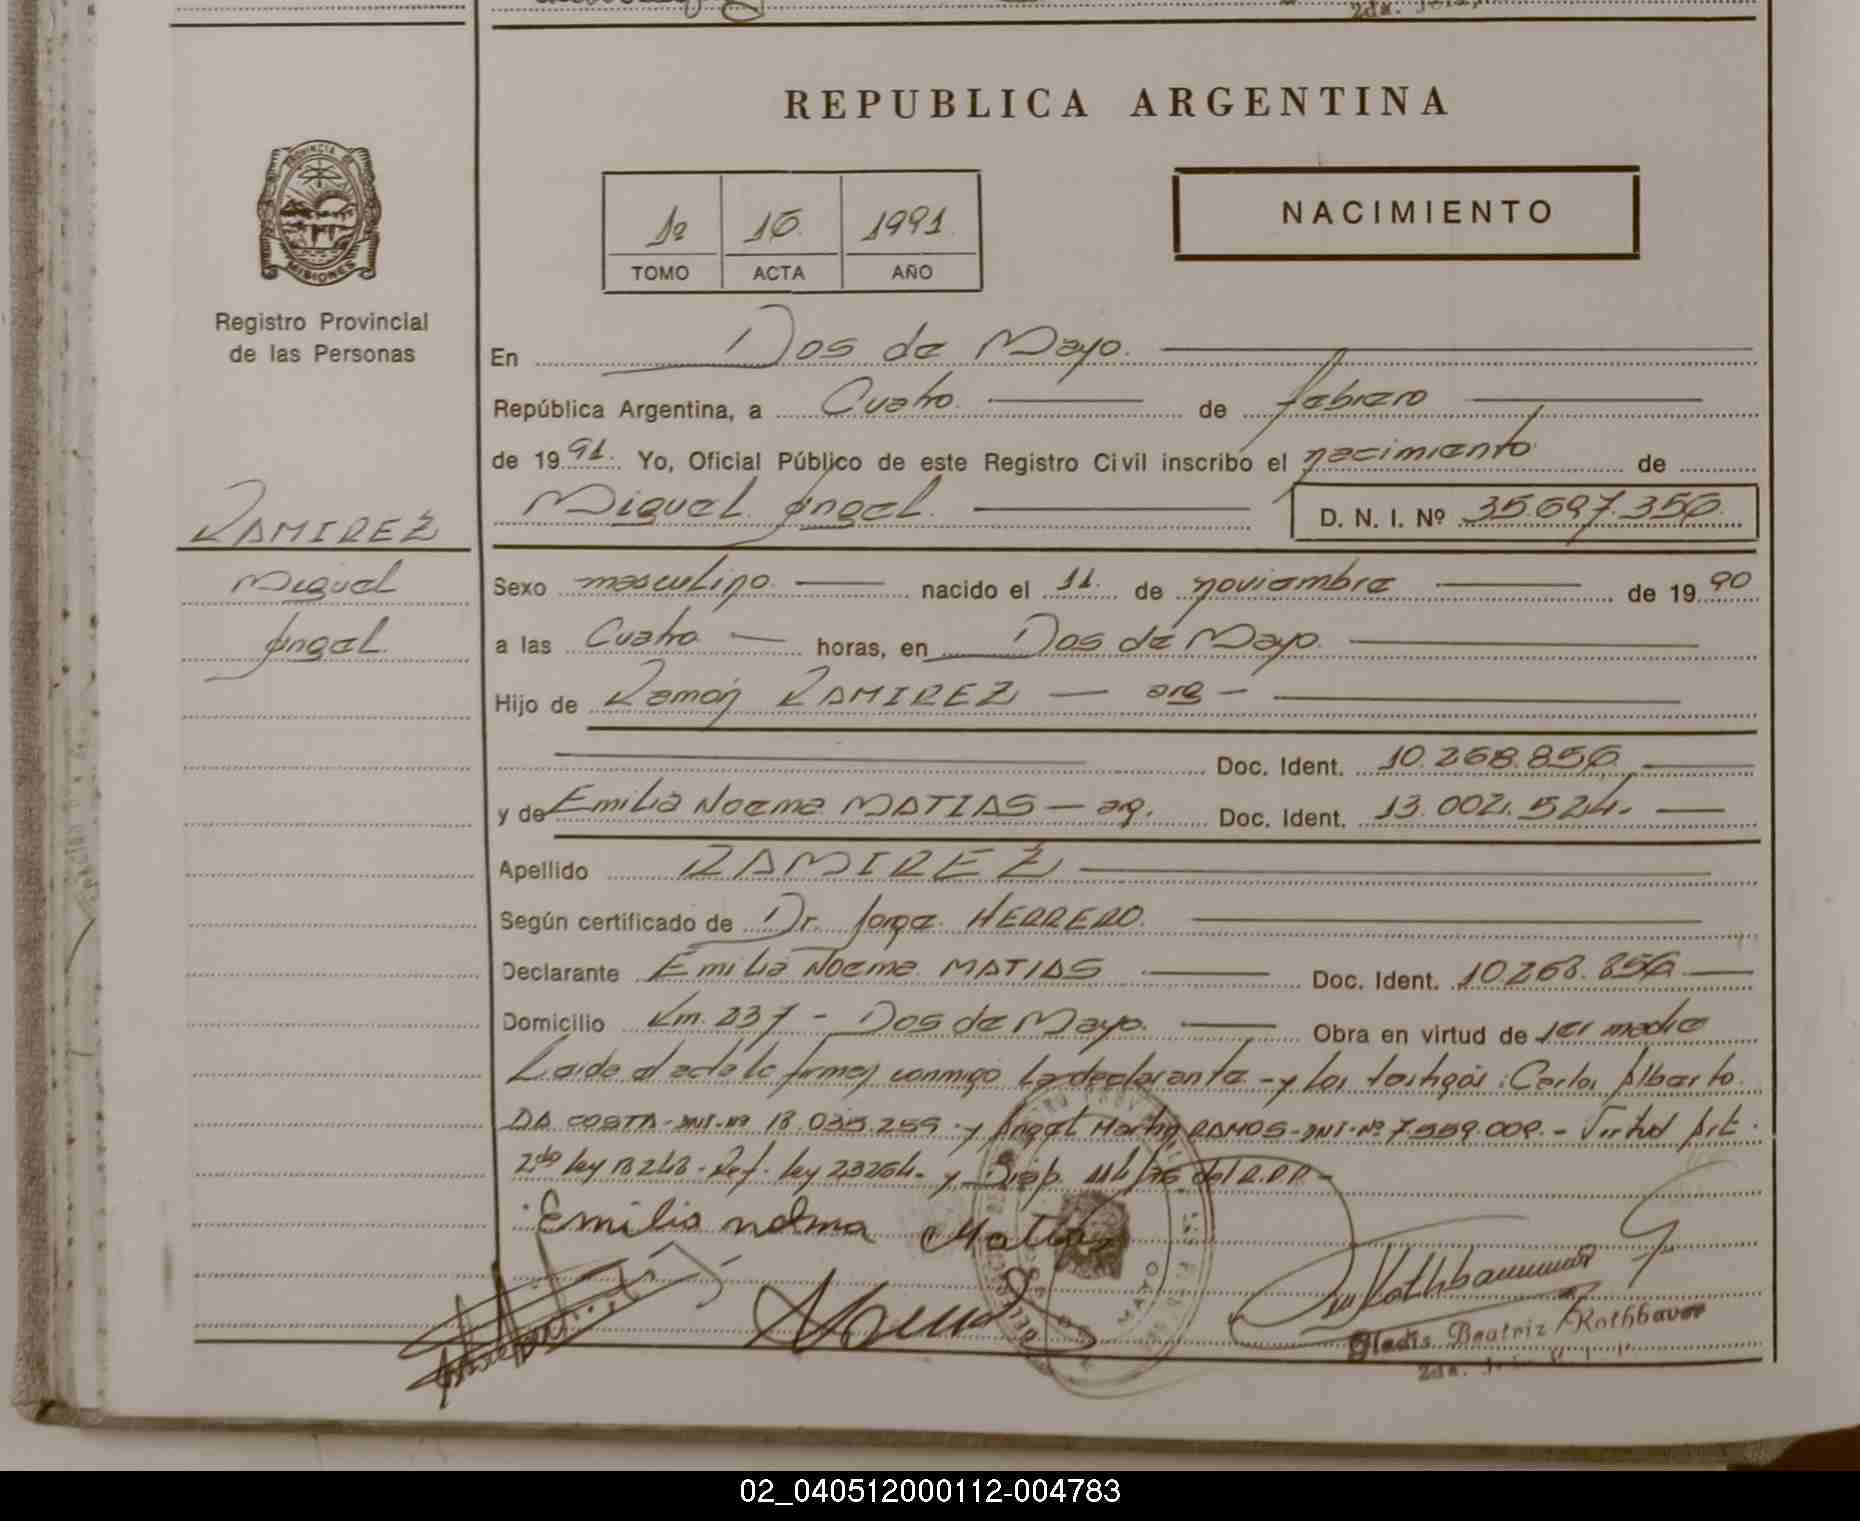 REPUBLICA ARGENTINA
PROVINCIA DE
MISIONES
Registro Provincial
de las Personas
1º 16 1991
TOMO ACTA AÑO
NACIMIENTO
En Dos de Mayo.
República Argentina, a Cuatro de febrero
de 1991. Yo, Oficial Público de este Registro Civil inscribo el nacimiento de
Miguel Angel. D. N. I. Nº 35.697.356
RAMIREZ
Miguel
Angel.
Sexo masculino nacido el 11. de noviembre de 1990
a las Cuatro horas, en Dos de Mayo.
Hijo de Ramón RAMIREZ — arg —
Doc. Ident. 10.268.856
y de Emilia Noema MATIAS — arg. Doc. Ident. 13.002.524.
Apellido RAMIREZ
Según certificado de Dr. Jorge HERRERO.
Declarante Emilia Noema MATIAS Doc. Ident. 10.268.856
Domicilio Km. 237 - Dos de Mayo. Obra en virtud de ser madre
Leída el acta la firman conmigo la declarante - y los testigos: Carlos Alberto
DA COSTA - DNI - Nº 18.035.259 - y Angel Martin RAMOS - DNI - Nº 7.559.009. - Virtud Art.
2do ley 18248 - Ref. ley 23264 - y Disp. del R.P.P. -
Emilia nelma Matias
MAYO
Rothbauer
Gladis Beatriz Rothbauer
2da.
02_040512000112-004783